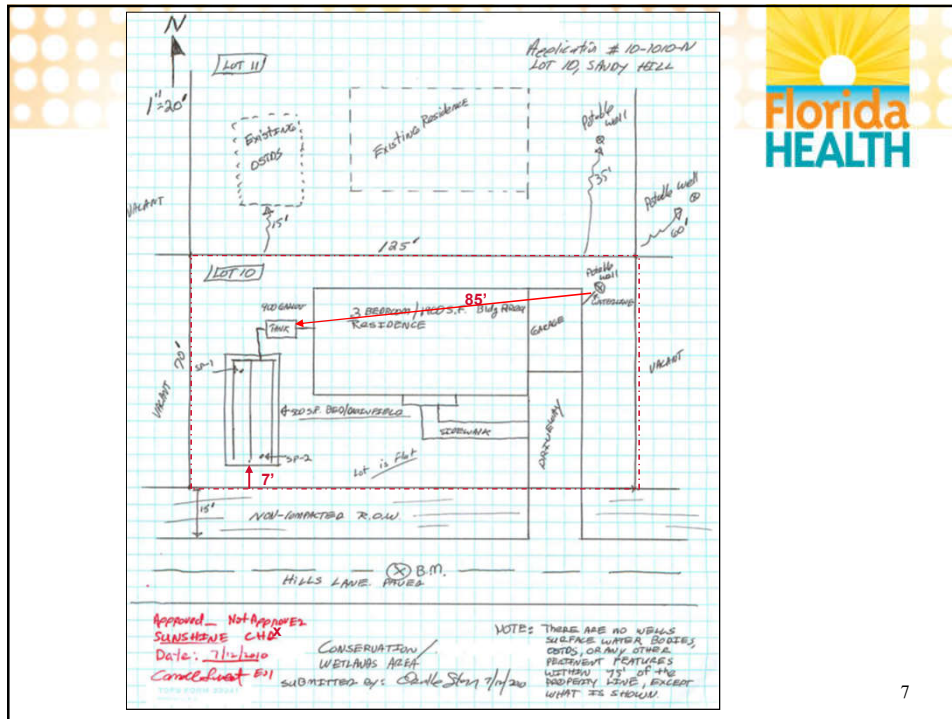 N
1"=20'
LOT 11
Application # 10-1010-N
LOT 10, SANDY HILL
Florida
HEALTH
EXISTING
OSTDS
Existing Residence
Potable
well
35'
Potable well
60'
VACANT
15'
125'
LOT 10
Potable
well
900 GALLON
TANK
85'
3 BEDROOM/1400 S.F. Bldg AREA
RESIDENCE
GARAGE
VACANT 70'
VACANT
SP-1
SP-2
S.F. BED/DRAINFIELD
SIDEWALK
DRIVEWAY
Lot is flat
7'
15'
NON-COMPACTED R.O.W.
B.M.
HILLS LANE PAVED
Approved_ Not Approved
x
SUNSHINE CHD
Date: 7/12/2010
EHI
CONSERVATION/
WETLANDS AREA
SUBMITTED By:
NOTE: THERE ARE NO WELLS
SURFACE WATER BODIES,
OSTDS, OR ANY OTHER
PERTINENT FEATURES
WITHIN 75' OF the
PROPERTY LINE, EXCEPT
WHAT IS SHOWN.
7